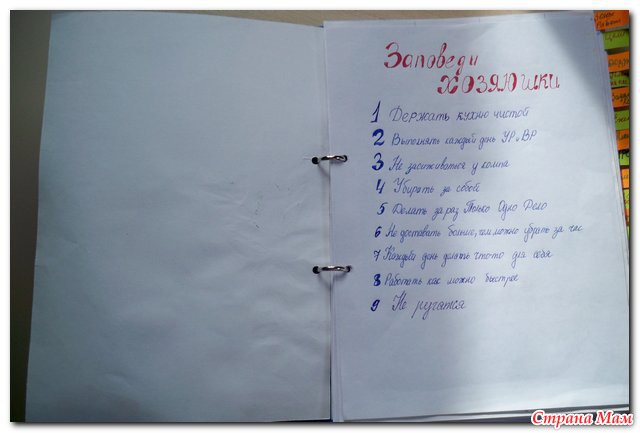 Заповеди
хозяюшки
1 Держать кухню чистой
2 Выполнять каждый день УР и ВР
3 Не засиживаться у компа
4 Убирать за собой
5 Делать за раз Только Одно Дело
6 Не доставать больше, чем можно убрать за час
7 Каждый день делать что-то для себя
8 Работать как можно быстрее
9 Не ругатся
Страна Мам